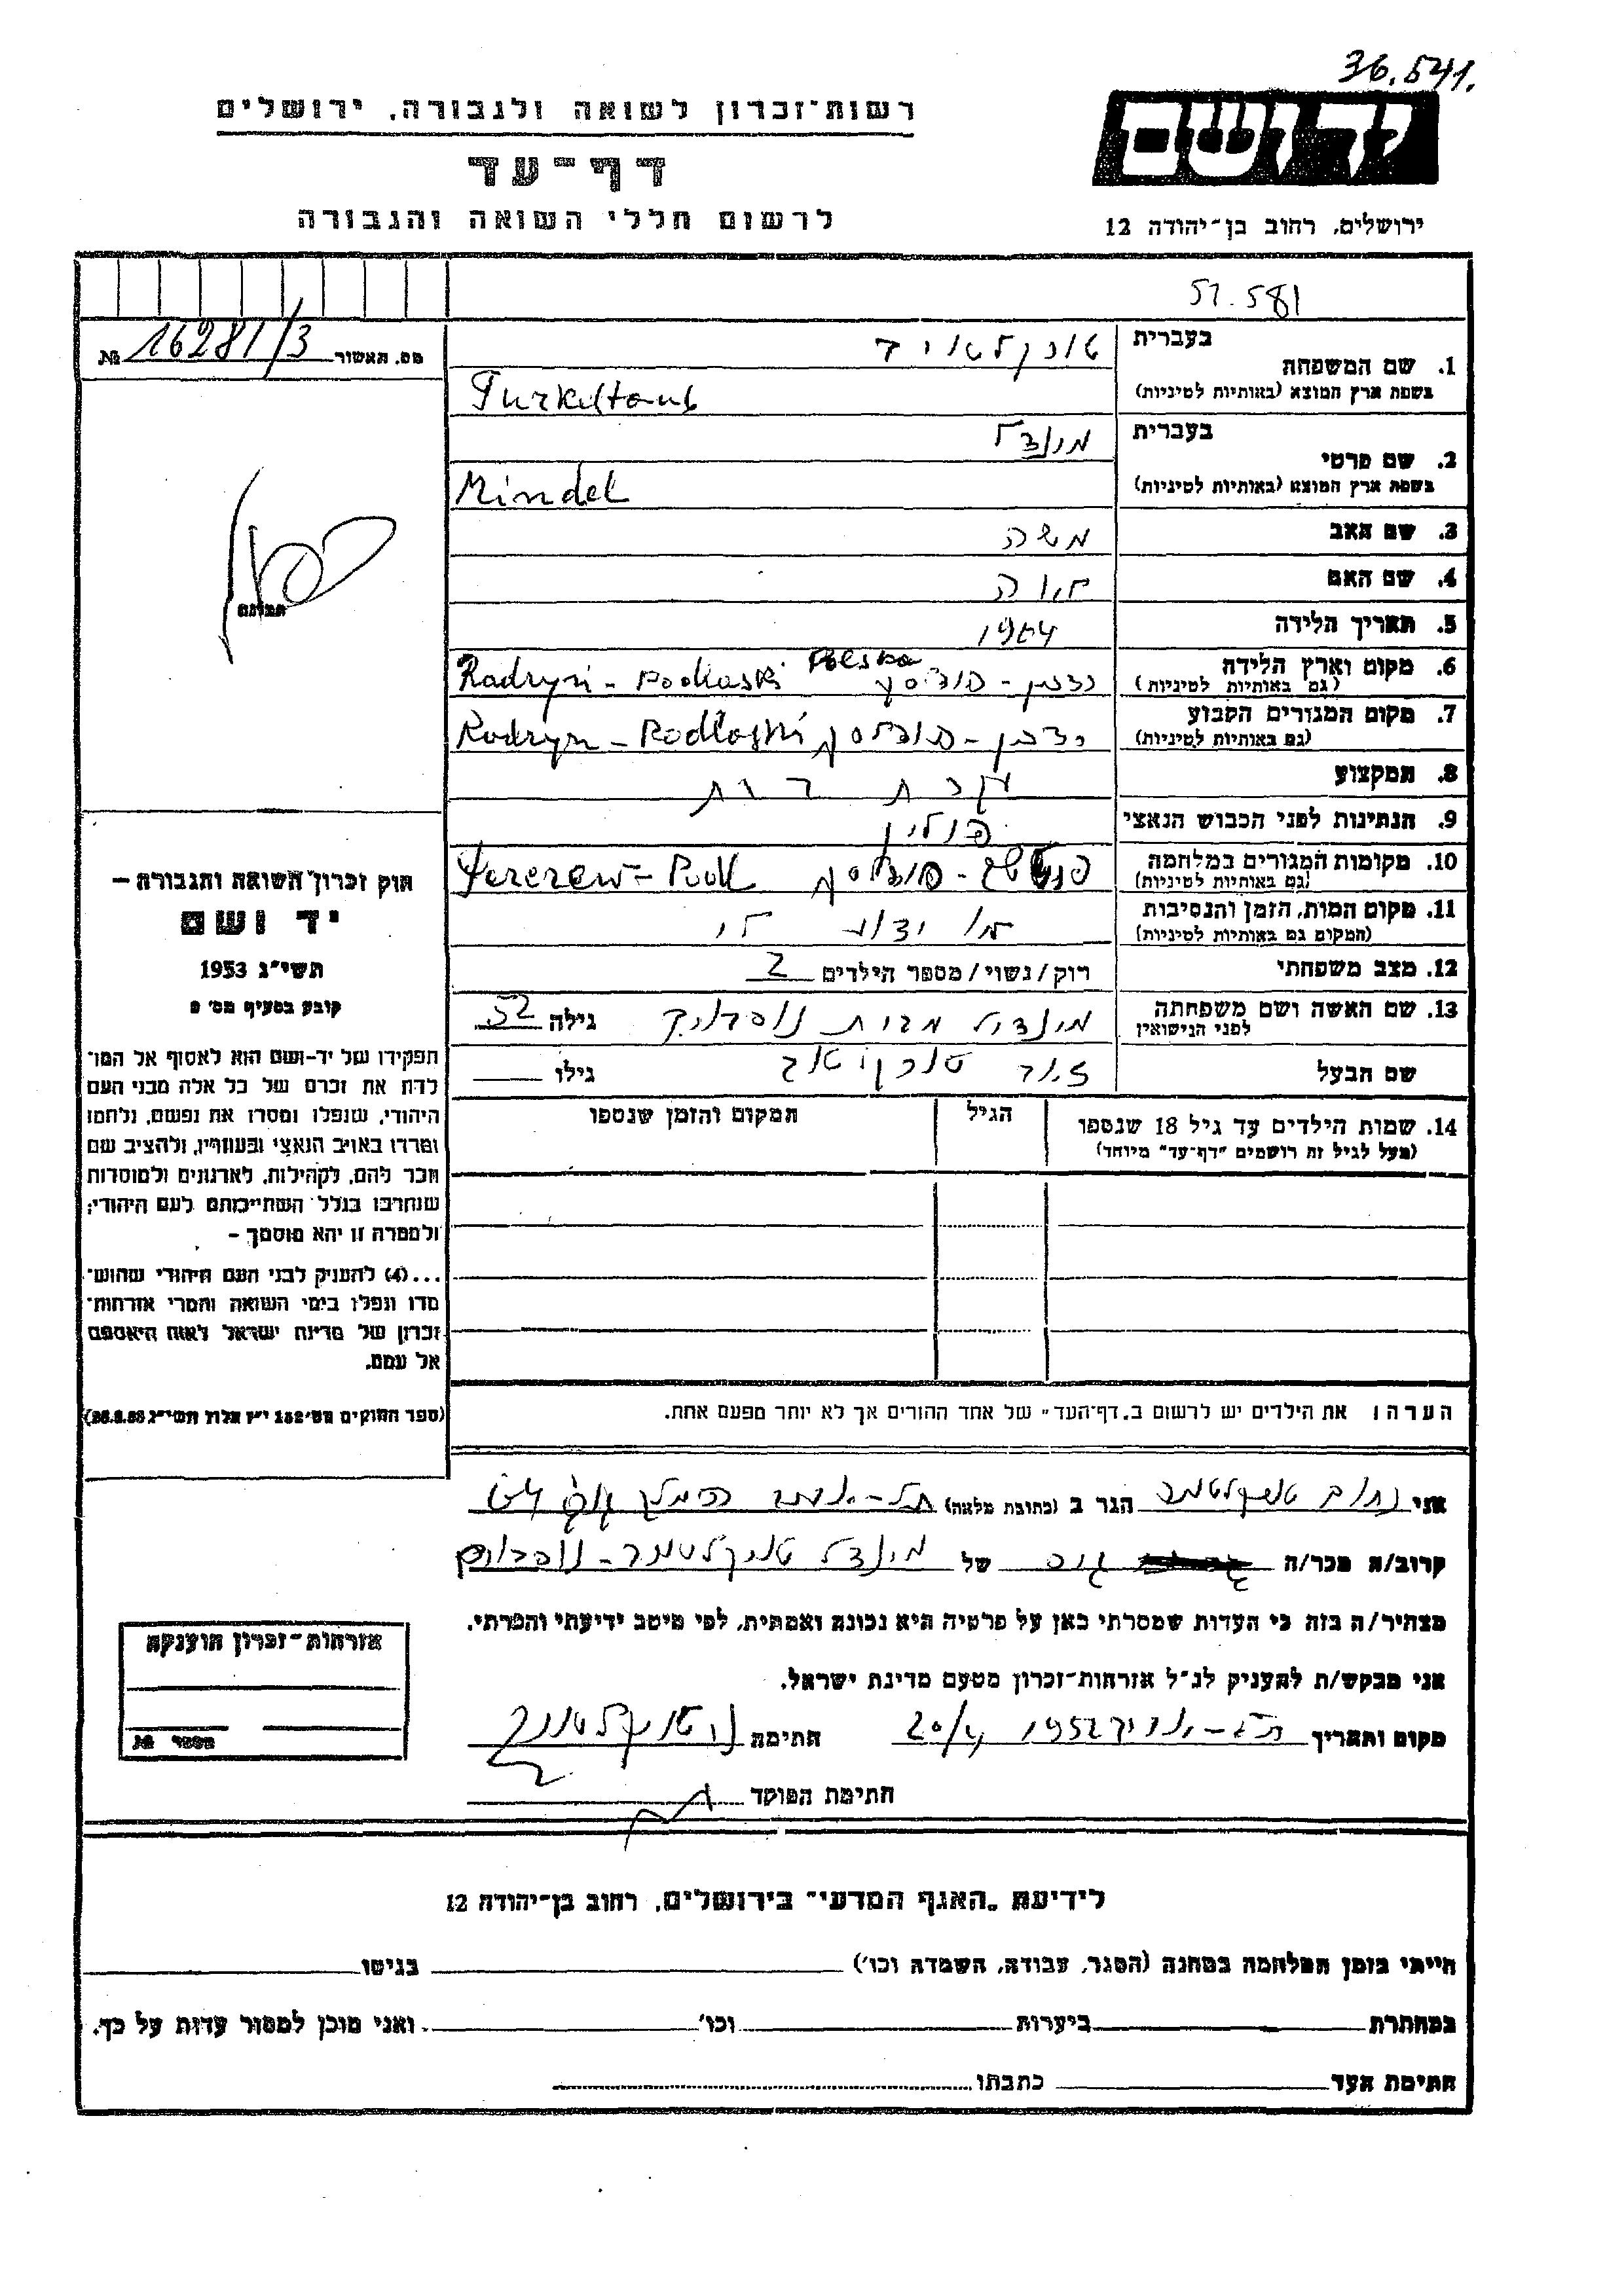 36.541.
רשות־זכרון לשואה ולגבורה, ירושלים
דף־עד
לרשום חללי השואה והגבורה
יד ושם
ירושלים, רחוב בן־יהודה 12
51.581
מס. תאשור 16281/3 №
1. שם המשפחה
בעברית
בשפת ארץ המוצא (באותיות לטיניות) Turkeltaub
2. שם פרטי
בעברית מינדל
בשפת ארץ המוצא (באותיות לטיניות) Mindel
3. שם האב משה
4. שם האם חוה
5. תאריך הלידה 1904
6. מקום וארץ הלידה
(גם באותיות לטיניות) Radzyń - Podlaski Polska
7. מקום המגורים הקבוע
(גם באותיות לטיניות) Radzyn - Podlaski
8. המקצוע עקרת בית
9. הנתינות לפני הכבוש הנאצי פולין
10. מקומות המגורים במלחמה
(גם באותיות לטיניות)
11. מקום המות, הזמן והנסיבות
(המקום גם באותיות לטיניות) לא ידוע לי
12. מצב משפחתי רוק/נשוי/מספר הילדים 2
13. שם האשה ושם משפחתה
לפני הנישואין מינדיל מבית גילה 52
שם הבעל גילו
14. שמות הילדים עד גיל 18 שנספו
(מעל לגיל זה רושמים "דף־עד" מיוחד)
הגיל
המקום והזמן שנספו
תמונה
חוק זכרון השואה והגבורה –
יד ושם
תשי״ג 1953
קובע בסעיף מס׳ 2
תפקידו של יד-ושם הוא לאסוף אל המו־
לדת את זכרם של כל אלה מבני העם
היהודי, שנפלו ומסרו את נפשם, נלחמו
ומרדו באויב הנאצי ובעוזריו, ולהציב שם
וזכר להם, לקהילות, לארגונים ולמוסדות
שנחרבו בגלל השתייכותם לעם היהודי;
ולמטרה זו יהא מוסמך –
...(4) להעניק לבני העם היהודי שהוש־
מדו ונפלו בימי השואה והמרי אזרחות־
זכרון של מדינת ישראל לאות היאספם
אל עמם.
(ספר החוקים מס׳ 132 י״ז אלול תשי״ג 28.8.53)
הערה: את הילדים יש לרשום ב„דף־העד" של אחד ההורים אך לא יותר מפעם אחת.
אני הגר ב (כתובת מלאה)
קרוב/ה מכר/ה גיס של מינדל
מצהיר/ה בזה כי העדות שמסרתי כאן על פרטיה היא נכונה ואמתית, לפי מיטב ידיעתי והכרתי.
אני מבקש/ת להעניק לנ״ל אזרחות־זכרון מטעם מדינת ישראל.
מקום ותאריך חתימה
חתימת הפוקד
אזרחות־זכרון הוענקה
מספר №
לידיעת „האגף המדעי" בירושלים, רחוב בן־יהודה 12
הייתי בזמן המלחמה במחנה (הסגר, עבודה, השמדה וכו׳) בגיטו
במחתרת ביערות וכו׳ ואני מוכן למסור עדות על כך.
חתימת העד כתבתו